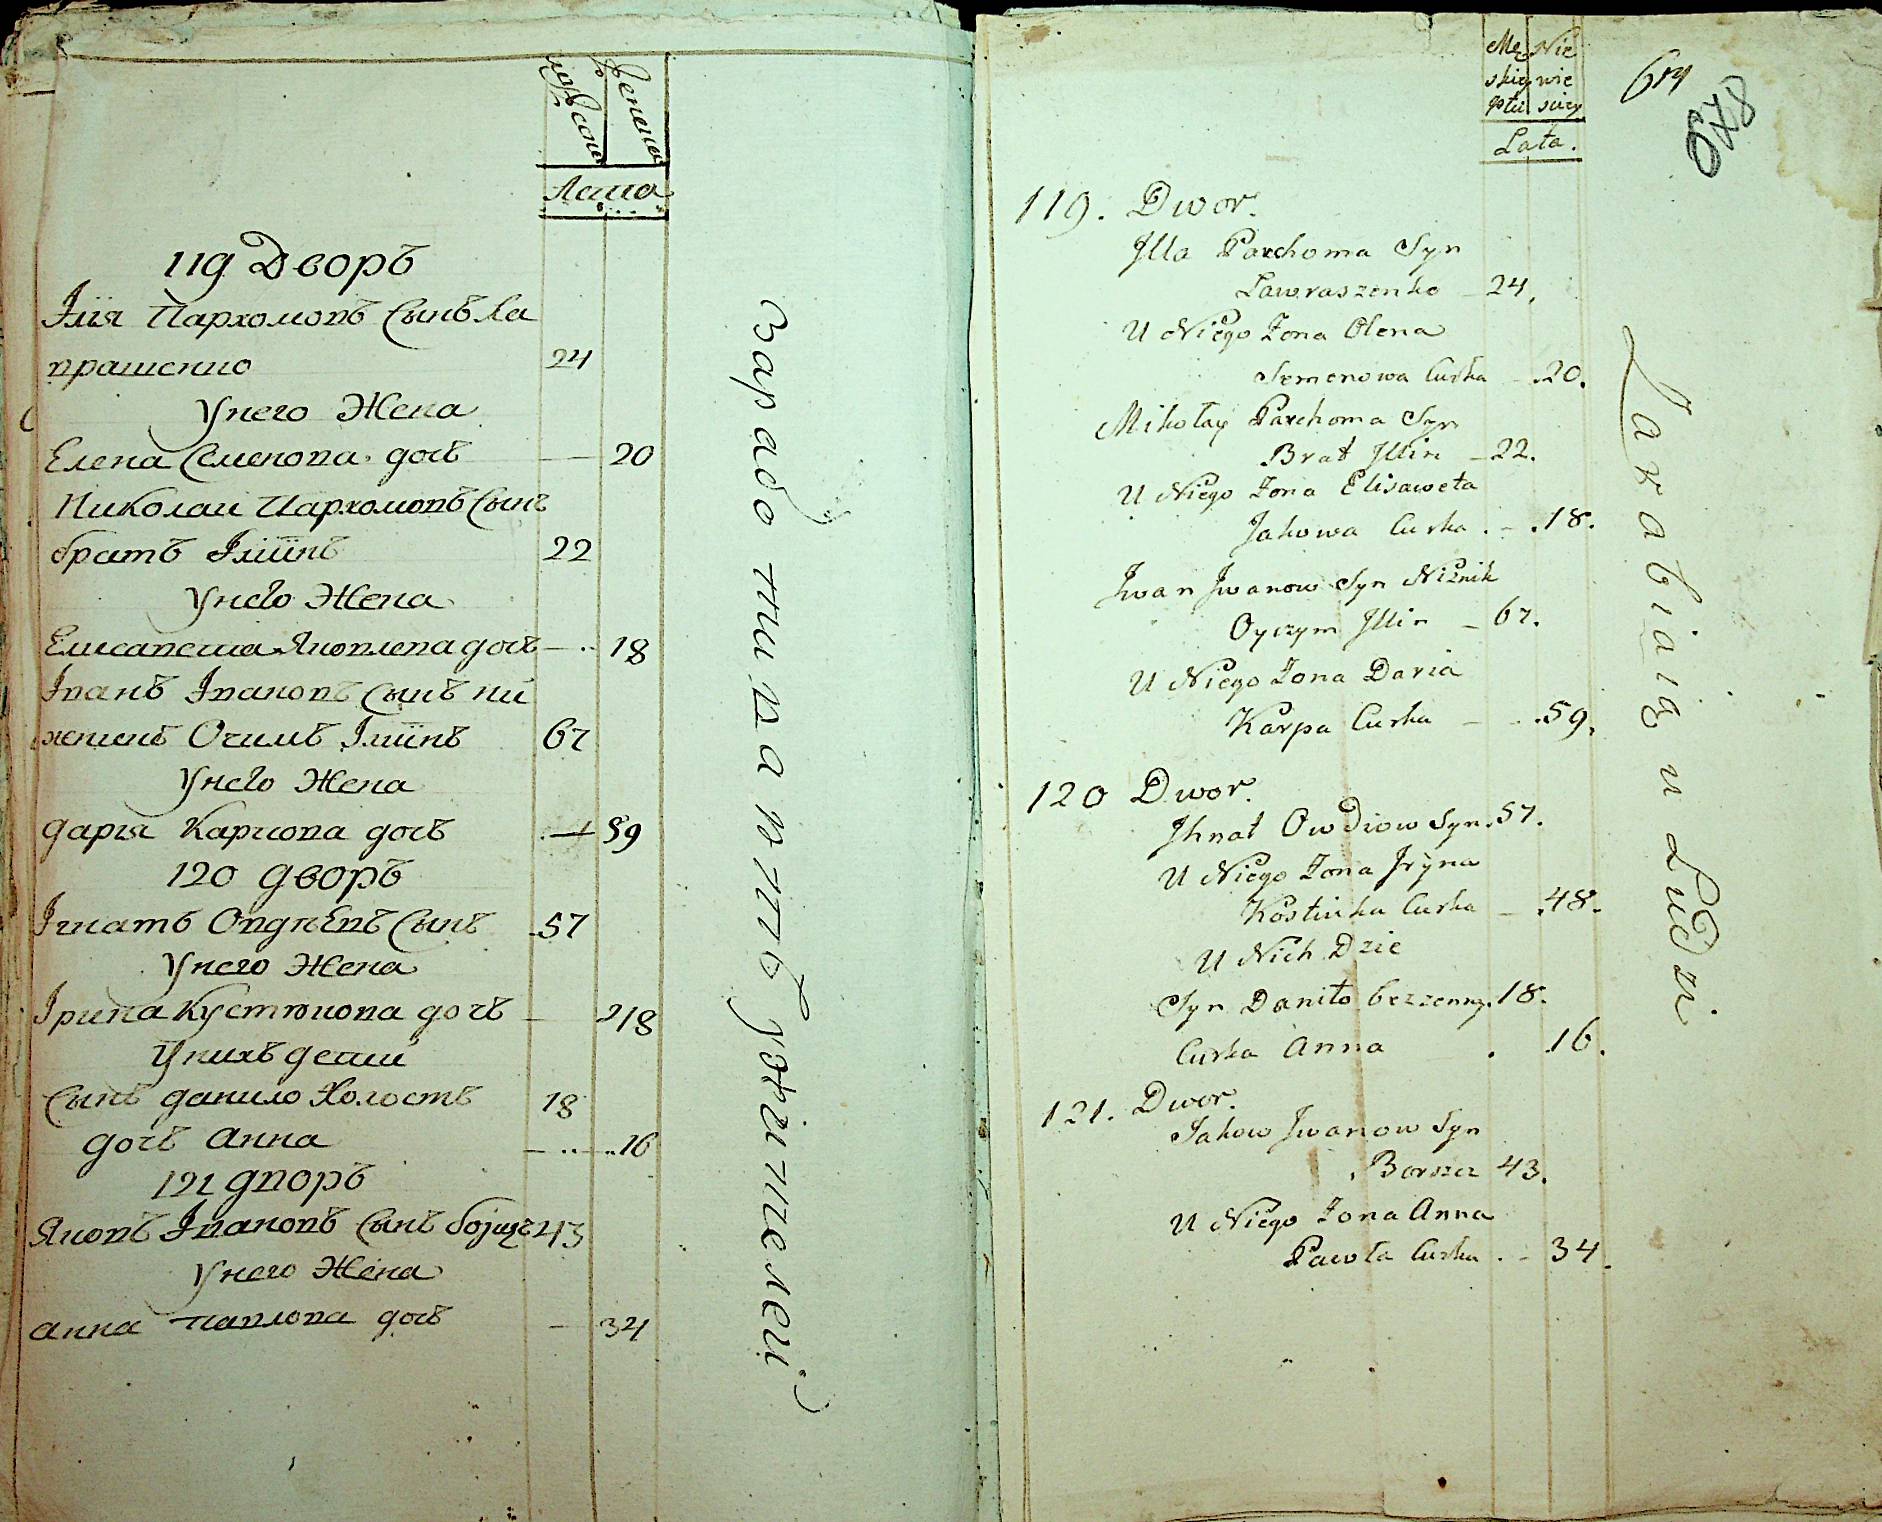 мужеска
женска
Лата
119 Дворъ
Ілія Пархомовъ Сынъ Ла
врашенко
24
Унего Жена
Елена Семенова дочъ
20
Николаи Пархомовъ Сынъ
братъ Іліинъ
22
Унего Жена
Елисавета Яковлева дочъ
18
Іванъ Івановъ Сынъ ни
жникъ Отчимъ Іліинъ
67
Унего Жена
дарія Карпова дочъ
59
120 дворъ
Ігнатъ Овдѣевъ Сынъ
57
Унего Жена
Ірина Кустюкова дочъ
48
Унихъ дети
Сынъ данило Холостъ
18
дочъ анна
16
121 дворъ
Яковъ Івановъ Сынъ борщъ 43
Унего Жена
анна павлова дочъ
34
Зарабо тива втъ улюителеи
Mę Nie
skiey wie
płci sciey
Lata.
64
678
119. Dwor.
Jlla Parchoma Syn
Lawraszenko 24.
U Niego Żona Olena
Semenowa Curka 20.
Mikołay Parchoma Syn
Brat Jllin 22.
U Niego Żona Elisaweta
Jakowa Curka 18.
Jwan Jwanow Syn Niżnik
Oyczym Jllin 67.
U Niego Żona Daria
Karpa Curka 59.
120 Dwor.
Jhnat Owdiow Syn. 57.
U Niego Żona Jryna
Kostiuka Curka 48.
U Nich Dzie
Syn Daniło bezzenny. 18.
Curka Anna 16.
121. Dwor.
Jakow Jwanow Syn
Borszcz 43.
U Niego Żona Anna
Pawła Curka 34.
Zarabiaią u Ludzi